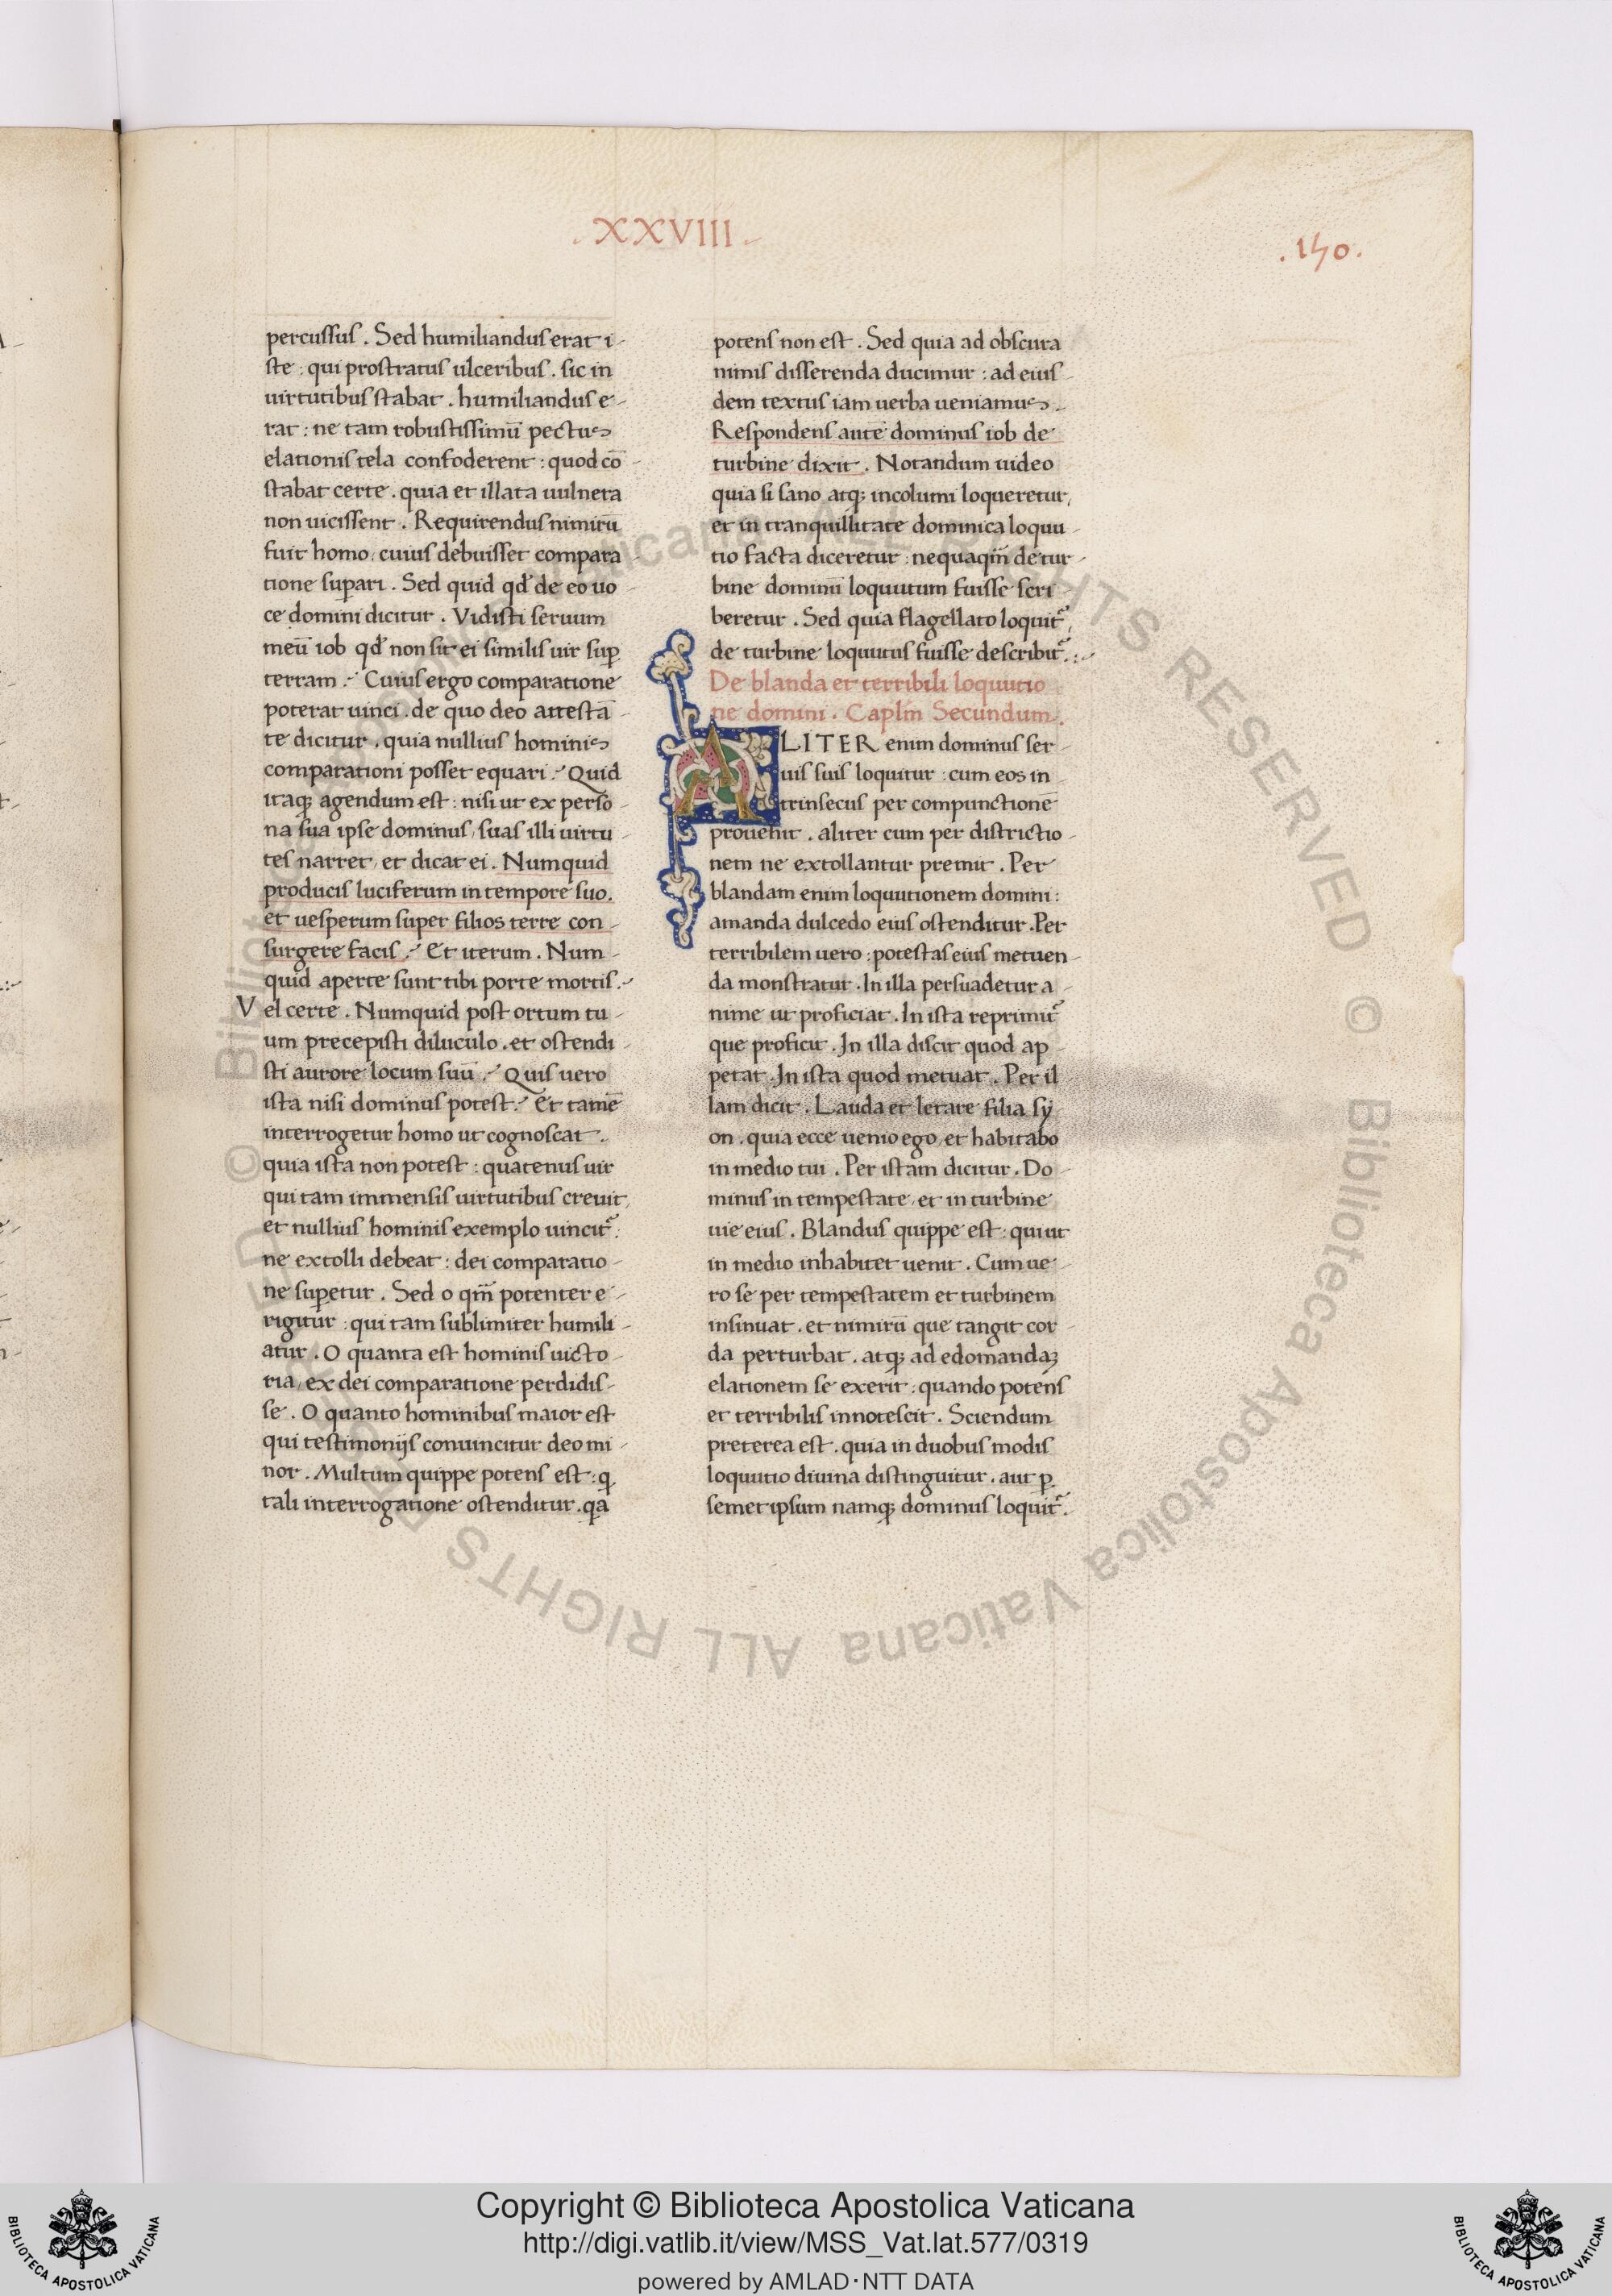 . XXVIII .
. 150 .
percussus . Sed humiliandus erat i-
ste : qui prostratus ulceribus . sic in
uirtutibus stabat . humiliandus e-
rat : ne tam robustissimū pectus
elationis tela confoderent : quod cō-
stabat certe . quia et illata uulnera
non uicissent . Requirendus nimirū
fuit homo , cuius debuisset compara-
tione suꝑari . Sed quid qđ de eo uo-
ce domini dicitur . Vidisti seruum
meū iob qđ non sit ei similis uir suꝑ
terram . Cuius ergo comparatione
poterat uinci . de quo deo attestā-
te dicitur . quia nullius hominis
comparationi posset equari . Quid
itaqꝫ agendum est : nisi ut ex perso-
na sua ipse dominus , suas illi uirtu-
tes narret , et dicat ei . Numquid
producis luciferum in tempore suo .
et uesperum super filios terre con-
surgere facis . Et iterum . Num-
quid aperte sunt tibi porte mortis .
Vel certe . Numquid post ortum tu-
um precepisti diluculo . et ostendi-
sti aurore locum suū . Quis uero
ista nisi dominus potest . Et tamē
interrogetur homo ut cognoscat .
quia ista non potest : quatenus uir
qui tam immensis uirtutibus creuit ,
et nullius hominis exemplo uincit᷑ :
ne extolli debeat : dei comparatio-
ne suꝑetur . Sed o qm̄ potenter e-
rigitur : qui tam sublimiter humili-
atur . O quanta est hominis uicto-
ria , ex dei comparatione perdidis-
se . O quanto hominibus maior est
qui testimonijs conuincitur deo mi-
nor . Multum quippe potens est : q̱
tali interrogatione ostenditur . qa
potens non est . Sed quia ad obscura
nimis disserenda ducimur : ad eius-
dem textus iam uerba ueniamus .
Respondens autē dominus iob de
turbine dixit . Notandum uideo
quia si sano atqꝫ incolumi loqueretur ,
et in tranquillitate dominica loquu-
tio facta diceretur : nequaqm̄ de tur-
bine dominū loquutum fuisse scri-
beretur . Sed quia flagellato loquit᷑ ,
de turbine loquutus fuisse describit᷑ .:
De blanda et terribili loquutio
ne domini . Caplm̄ Secundum .
ALITER enim dominus ser-
uis suis loquitur : cum eos in-
trinsecus per compunctionē
prouehit . aliter cum per districtio-
nem ne extollantur premit . Per
blandam enim loquutionem domini :
amanda dulcedo eius ostenditur . Per
terribilem uero : potestas eius metuen-
da monstratur . In illa persuadetur a-
nime ut proficiat . In ista reprimit᷑
que proficit . In illa discit quod ap-
petat . In ista quod metuat . Per il-
lam dicit . Lauda et letare filia sy-
on . quia ecce uenio ego , et habitabo
in medio tui . Per istam dicitur . Do-
minus in tempestate , et in turbine
uie eius . Blandus quippe est : qui ut
in medio inhabitet uenit . Cum ue-
ro se per tempestatem et turbinem
insinuat . et nimirū que tangit cor-
da perturbat . atqꝫ ad edomandaꝫ
elationem se exerit : quando potens
et terribilis innotescit . Sciendum
preterea est . quia in duobus modis
loquutio diuina distinguitur . aut ꝑ
semet ipsum namqꝫ dominus loquit᷑ .
Copyright © Biblioteca Apostolica Vaticana
http://digi.vatlib.it/view/MSS_Vat.lat.577/0319
powered by AMLAD · NTT DATA
BIBLIOTECA APOSTOLICA VATICANA
BIBLIOTECA APOSTOLICA VATICANA
© Biblioteca Apostolica Vaticana ALL RIGHTS RESERVED
© Biblioteca Apostolica Vaticana ALL RIGHTS RESERVED